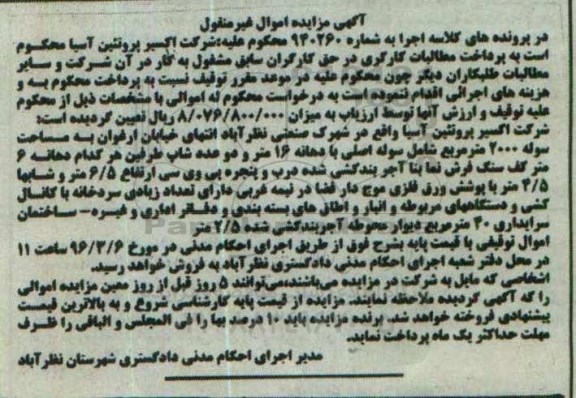 آگهی مزایده اموال غیرمنقول
در پرونده های کلاسه اجرا به شماره ۹۴۰۲۶۰ محکوم علیه:شرکت اکسیر پروتئین آسیا محکـوم
است به پرداخت مطالبات کارگری در حق کارگران سابق مشغول به کار در آن شـرکت و سـایر
مطالبات طلبکاران دیگر چون محکوم علیه در موعد مقرر توقیف نسبت به پرداخت محکوم بـه و
هزینه های اجرائی اقدام ننموده است به درخواست محکوم له اموالی با مشخصات ذیل از محکوم
علیه توقیف و ارزش آنها توسط ارزیاب به میزان ۸/۰۷۶/۸۰۰/۰۰۰ ریال تعیین گردیده است:
شرکت اکسیر پروتئین آسیا واقع در شهرک صنعتی نظرآباد انتهای خیابان ارغوان بـه مـساحت
سوله ۲۰۰۰ مترمربع شامل سوله اصلی با دهانه ۱۶ متر و دو عدد شاپ طرفین هر کدام دهانـه ۶
متر کف سنگ فرش نما بنا آجر بندکشی شده درب و پنجره پی وی سی ارتفاع ۶/۵ متر و شاپها
۴/۵ متر با پوشش ورق فلزی موج دار فضا در نیمه غربی دارای تعداد زیادی سردخانه با کانـال
کشی و دستگاههای مربوطه و انبار و اطاق های بسته بندی و دفـاتر اداری و غیـره- ساختمان
سرایداری ۴۰ مترمربع دیوار محوطه آجربندکشی شده ۲/۵ متر
اموال توقیفی با قیمت پایه بشرح فوق از طریق اجرای احکام مدنی در مورخ ۹۶/۳/۶ ساعت ۱۱
در محل دفتر شعبه اجرای احکام مدنی دادگستری نظرآباد به فروش خواهد رسید.
اشخاصی که مایل به شرکت در مزایده می‌باشند،می‌توانند ۵ روز قبل از روز معین مزایده اموالی
را که آگهی گردیده ملاحظه نمایند. مزایده از قیمت پایه کارشناسی شروع و به بالاترین قیمـت
پیشنهادی فروخته خواهد شد. برنده مزایده باید ۱۰ درصد بها را فی المجلس و الباقی را ظـرف
مهلت حداکثر یک ماه پرداخت نماید.
مدیر اجرای احکام مدنی دادگستری شهرستان نظرآباد